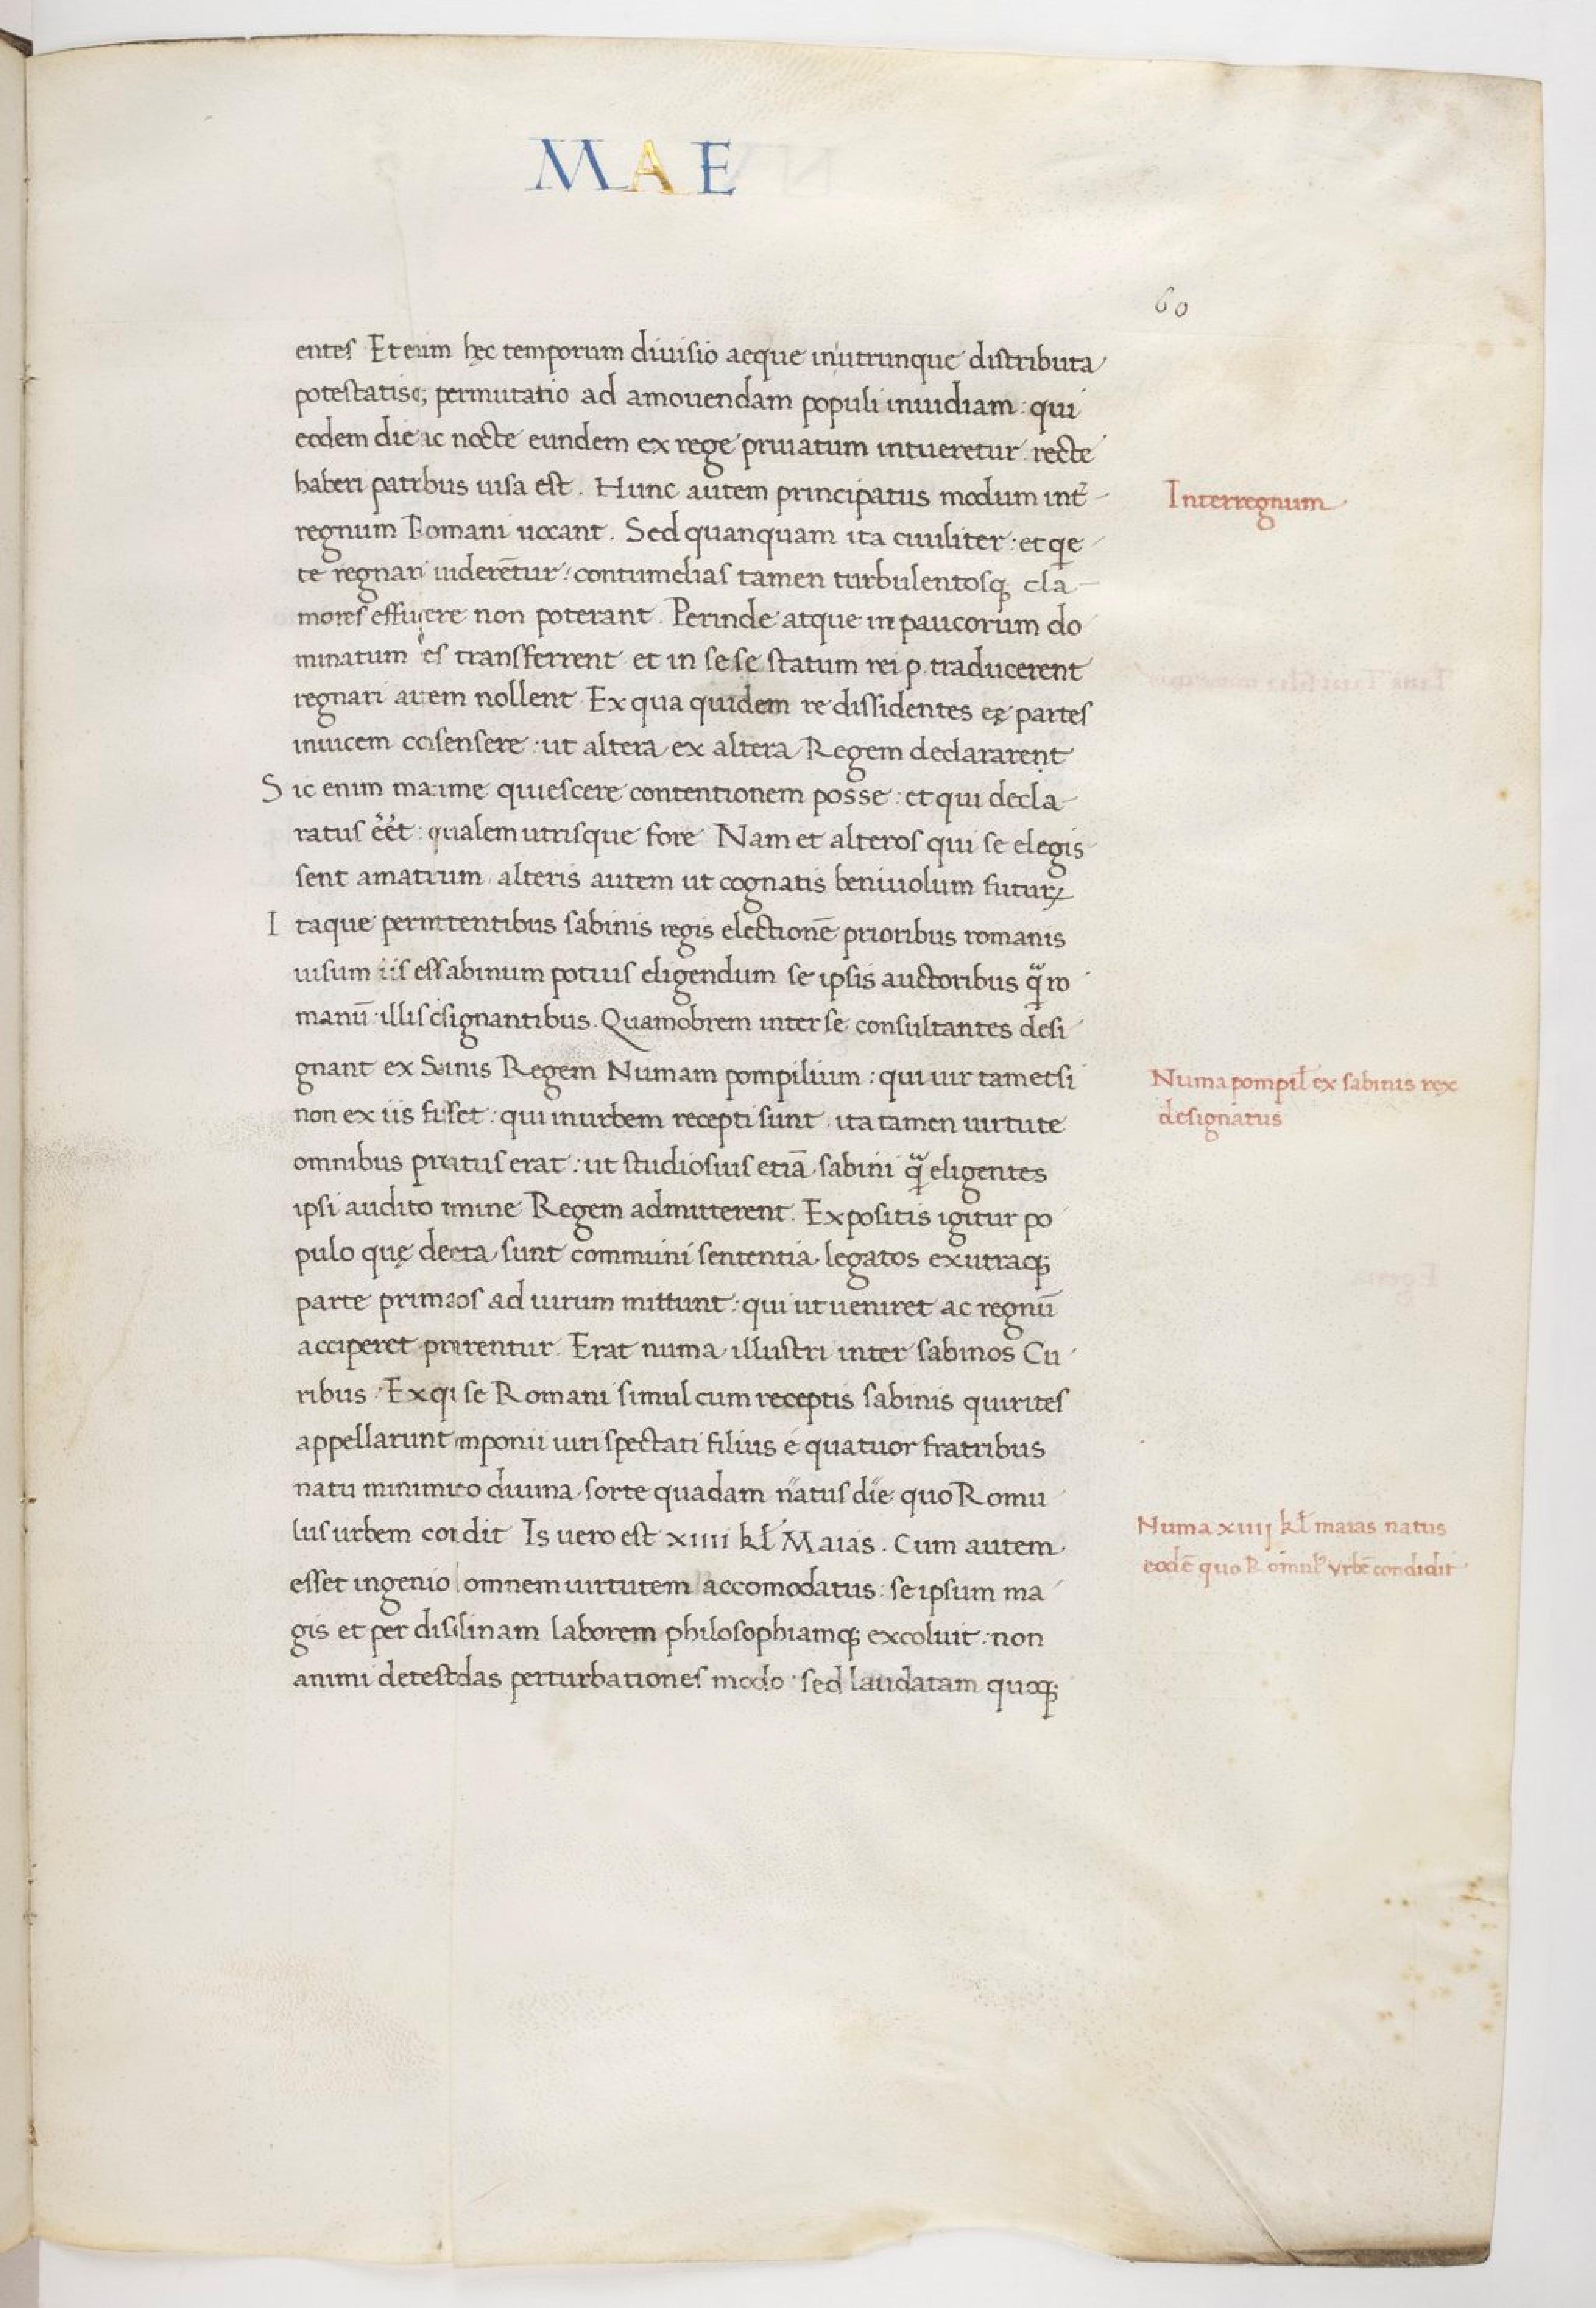 MAE
60
entes Et enim hęc temporum diuisio aeque inutrunque distributa
potestatisq; permutatio ad amouendam populi inuidiam: qui
eodem die ac nocte eundem ex rege priuatum intueretur recte
haberi patribus uisa est. Hunc autem principatus modum int̄
Interregnum
regnum Romani uocant. Sed quanquam ita ciuiliter: et q̄e
te regnari uiderētur: contumelias tamen turbulentosq; cla
mores effugere non poterant. Perinde atque in paucorum do
minatum transferrent et in se se statum rei p. traducerent
regnari autem nollent Ex qua quidem re dissidentes eę partes
inuicem cōsensere: ut altera ex altera Regem declararent
Sic enim maxime quiescere contentionem posse: et qui decla
ratus eēt: qualem utrisque fore Nam et alteros qui se elegis
sent amaturum alteris autem ut cognatis beniuolum futuꝝ
Itaque permittentibus sabinis regis electionē prioribus romanis
uisum iis est sabinum potius eligendum se ipsis auctoribus q̄ ro
manū illis designantibus. Quamobrem inter se consultantes desi
gnant ex Sabinis Regem Numam pompilium: qui uir tametsi
Numa pompil̄ ex sabinis rex
designatus
non ex iis fuisset: qui inurbem recepti sunt ita tamen uirtute
omnibus erat: ut studiosius etiā sabini q̄ eligentes
ipsi audito nomine Regem admitterent. Expositis igitur po
pulo quę decreta sunt communi sententia legatos ex utraq;
parte primarios ad uirum mittunt: qui ut ueniret ac regnū
acciperet precarentur. Erat numa illustri inter sabinos Cu
ribus Ex q̄ se Romani simul cum receptis sabinis quirites
appellarunt pomponii uiri spectati filius e quatuor fratribus
natu minimus diuina sorte quadam natus die quo Romu
lus urbem condidit Is uero est xiiii kl̄ Maias. Cum autem
Numa xiiij kl̄ maias natus
eodē quo Romul' vrbē condidit
esset ingenio omnem uirtutem accomodatus: se ipsum ma
gis et per disciplinam laborem philosophiamq; excoluit: non
animi detestandas perturbationes modo sed laudatam quoq;